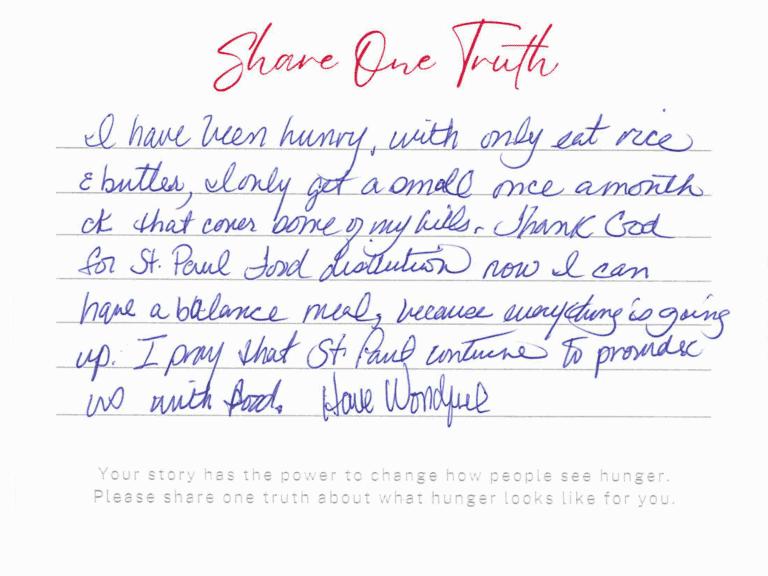 Share One Truth
I have been hunry, with only eat rice
& butter, I only get a small once a month
ck that cover some of my bills. Thank God
for St. Paul Food distution now I can
have a balance meal, because everything is going
up. I pray that St. Paul continue to provide
us with food. Have Wondful
Your story has the power to change how people see hunger.
Please share one truth about what hunger looks like for you.